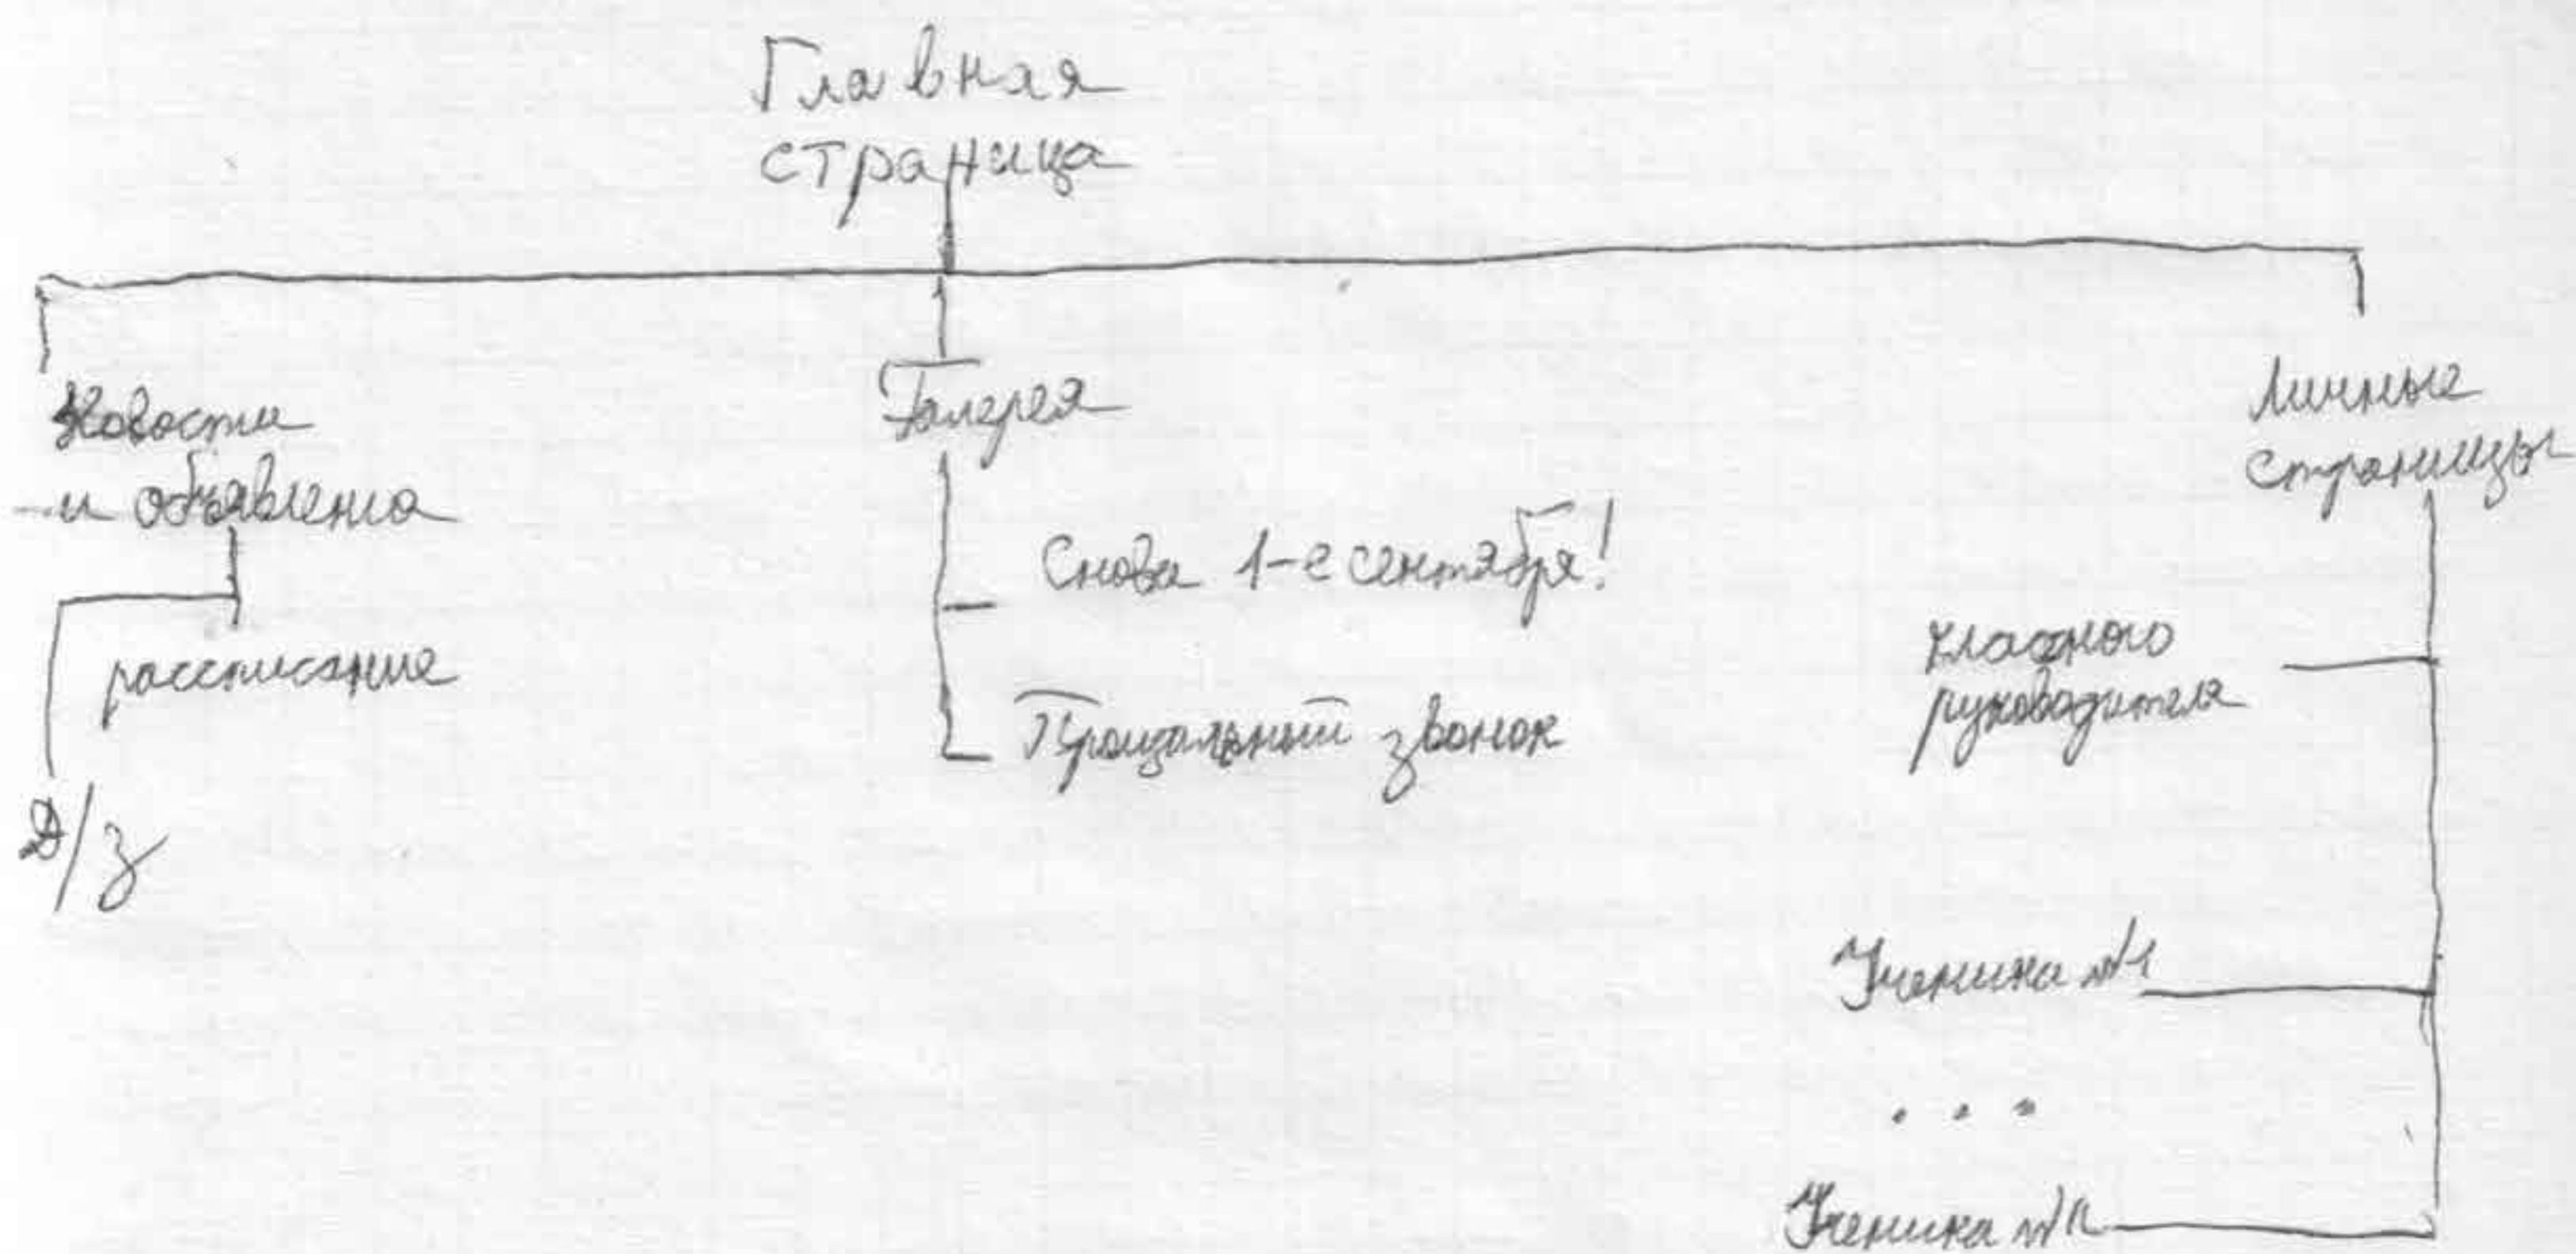 Главная
страница
Новости
и объявления
расписание
Д/З
Галерея
Снова 1-е сентября!
Прощальный звонок
Личные
страницы
классного
руководителя
Ученика №1
...
Ученика №n